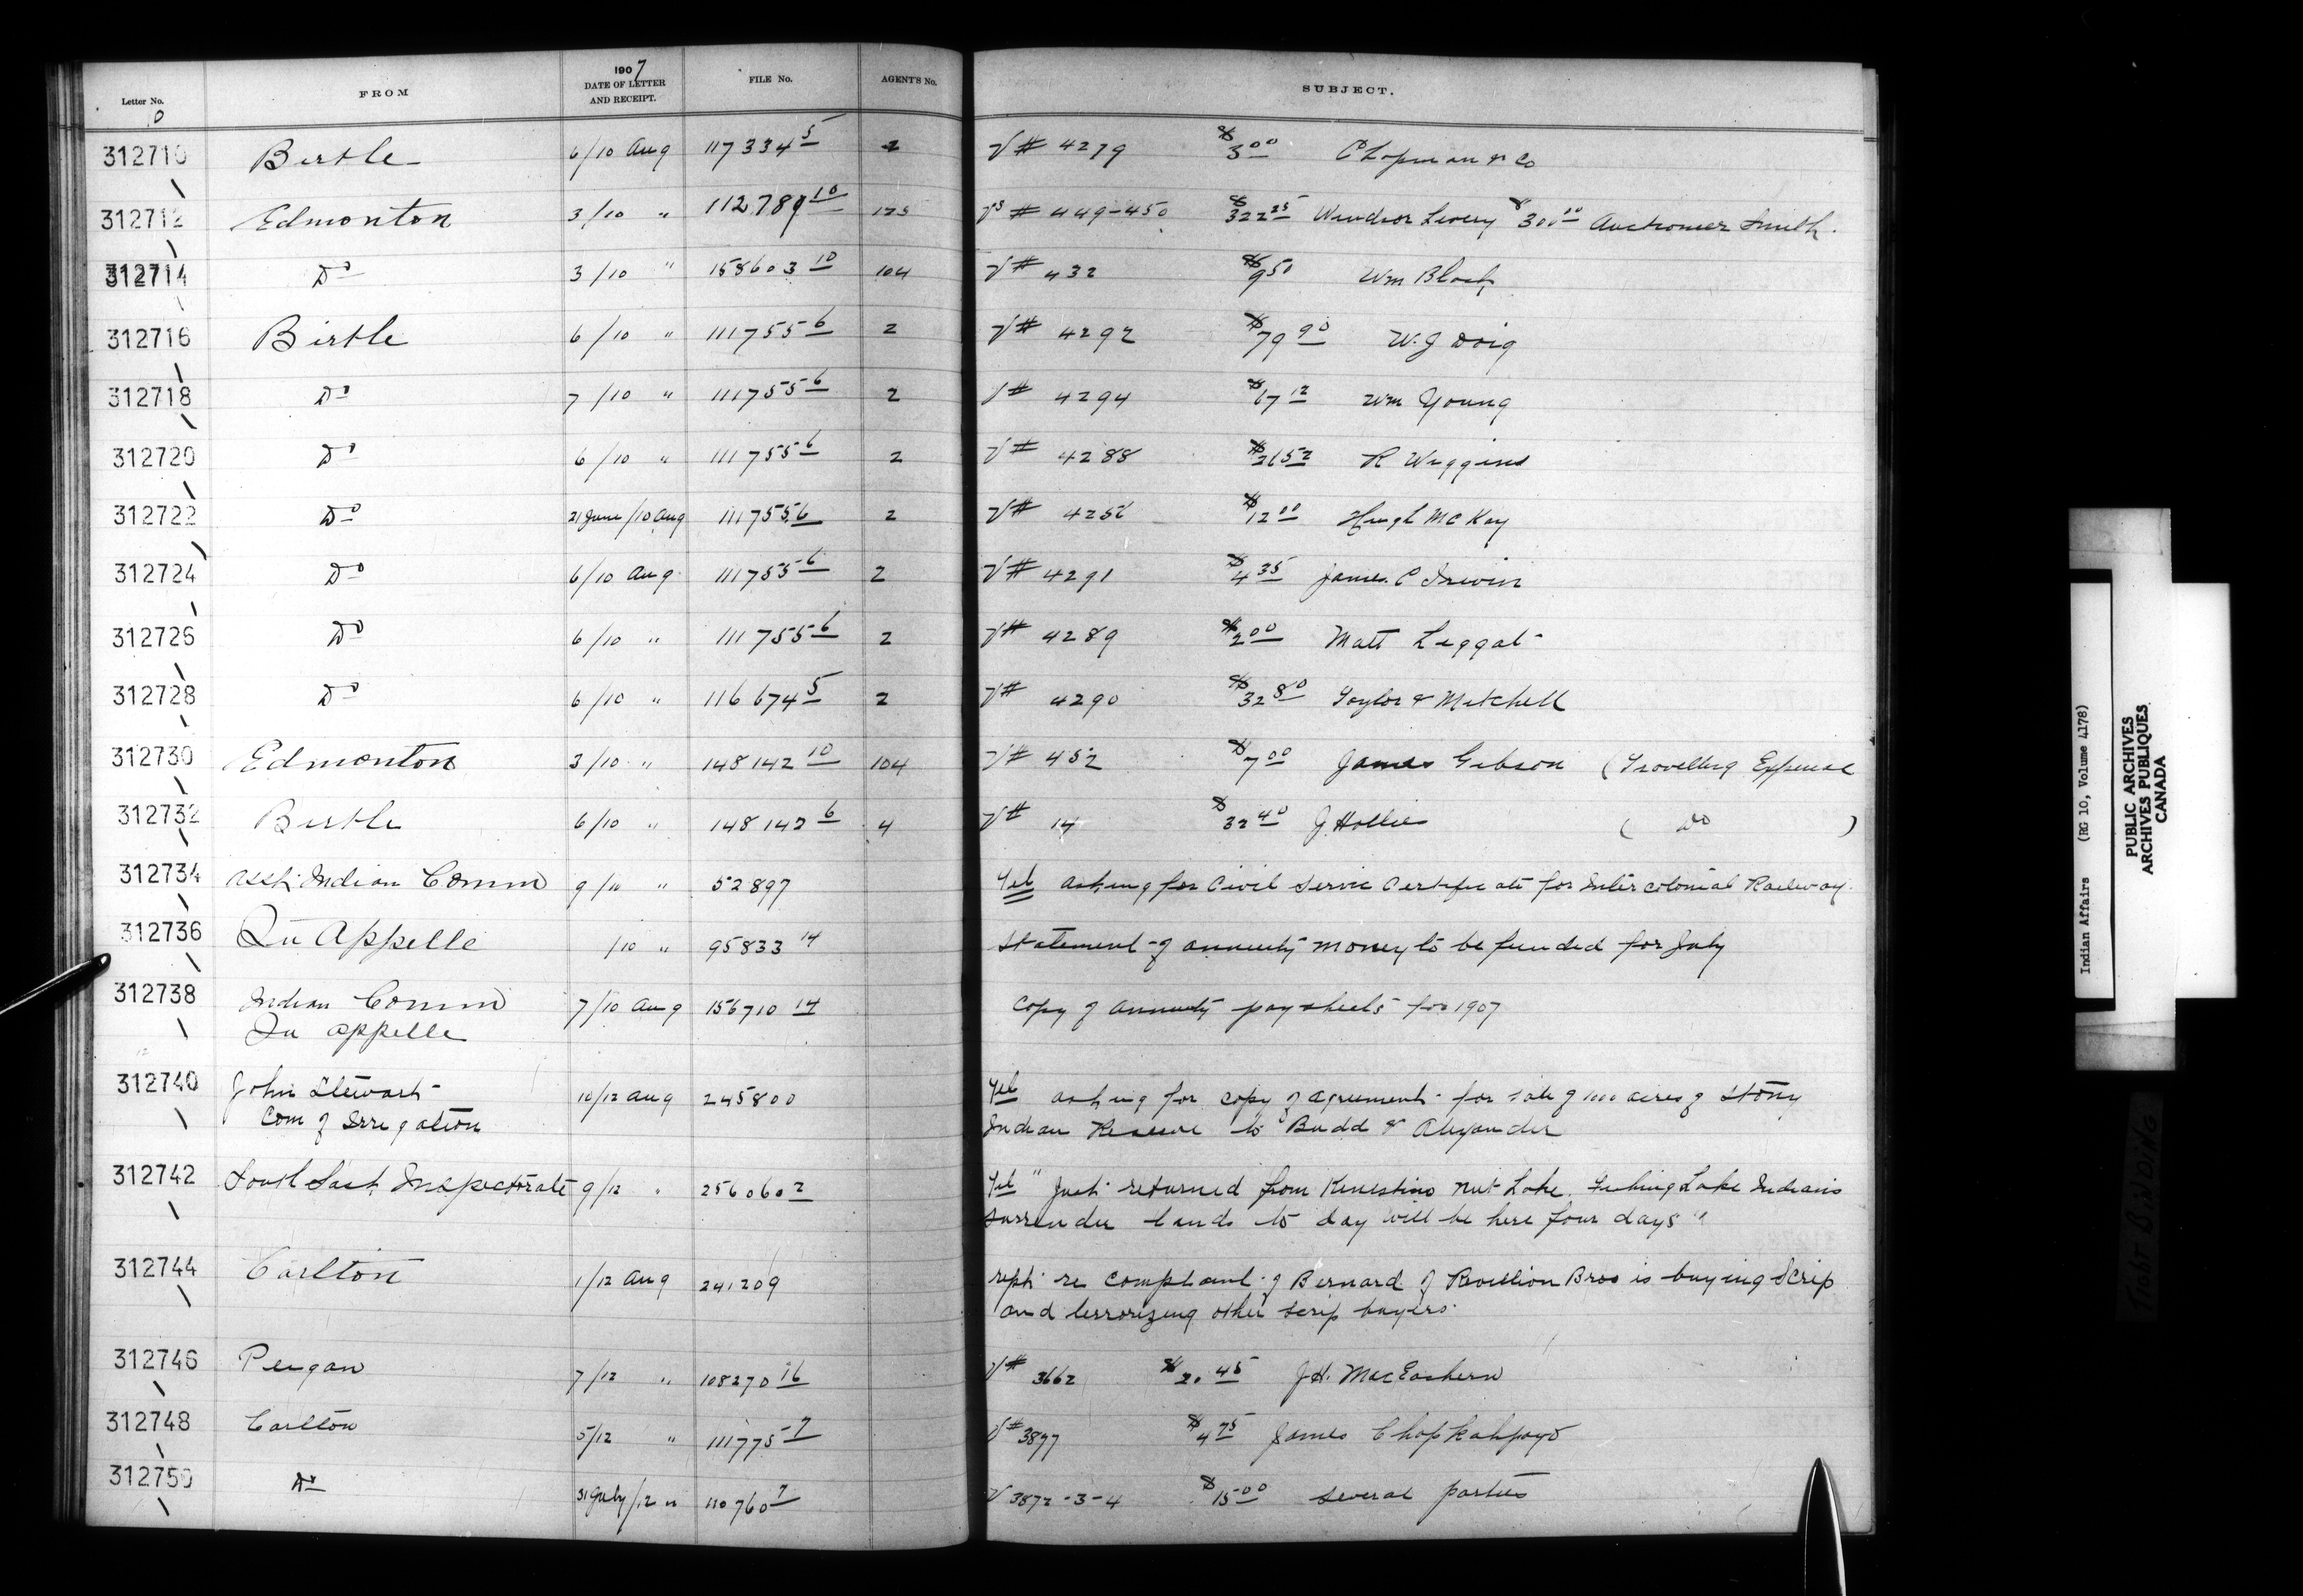 Letter No. FROM 1907 DATE OF LETTER AND RECEIPT. FILE No. AGENT'S No. SUBJECT.
312710 Birtle 6/10 Aug 117334 5 2 V# 4279 $3 00 Chapman & Co
312712 Edmonton 3/10 " 112789 10 V# 449-450 $322 25 Windsor Livery $300 00 Auctioneer Smith.
312714 Do 3/10 " 158603 10 104 V# 432 $9 50 Wm Black
312716 Birtle 6/10 " 111755 6 2 V# 4292 $79 90 W. J Doig
312718 Do 7/10 " 111755 6 2 V# 4294 $67 12 Wm Young
312720 Do 6/10 " 111755 6 2 V# 4288 R Wiggins
312722 Do 21 June/10 Aug 111755 6 2 V# $12 00 Hugh McKay
312724 Do 6/10 Aug 111755 6 2 V# 4291 $4 35 James C Irwin
312726 Do 6/10 " 111755 6 2 V# 4289 $2 00 Matt Leggat
312728 Do 6/10 " 116674 5 2 V# 4290 $32 80 Taylor & Mitchell
312730 Edmonton 3/10 " 148142 10 104 V# 452 $7 00 James Gibson (Travelling Expense
312732 Birtle 6/10 " 148142 6 4 V# 14 $32 40 J. Hollies ( do )
312734 Asst. Indian Comm 9/10 " 52897 Tel asking for Civil Service Certificate for Intercolonial Railway.
312736 Qu Appelle /10 " 95833 14 Statement of annuity money to be funded for July
312738 Indian Comm 7/10 Aug 156710 14 Copy of annuity paysheets for 1907
Qu appelle
312740 John Stewart 10/12 Aug 245800 Tel asking for copy of agreement for sale of 1000 acres of Stony
Com of Irrigation Indian Reserve to Budd & Alexander
312742 South Sask Inspectorate 9/12 " 256060 2 Tel "Just returned from Kinestino Nut Lake. Fishing Lake Indians
surrender lands to day will be here four days"
312744 Carlton 1/12 Aug 241209 rept. re complaint of Bernard of Revillion Bros is buying Scrip
and terrorizing other scrip buyers.
312746 Peigan 7/12 " 108270 16 V# 3662 $2. 45 J.H. MacEachern
312748 Carlton 5/12 " 111775 7 V# 3877 $4 75 James Chopkahpayo
312750 Do 31 July/12 " 110760 7 V 3872-3-4 $15 00 Several parties
Indian Affairs (RG 10, Volume 4178)
PUBLIC ARCHIVES
ARCHIVES PUBLIQUES
CANADA
TIGHT BINDING